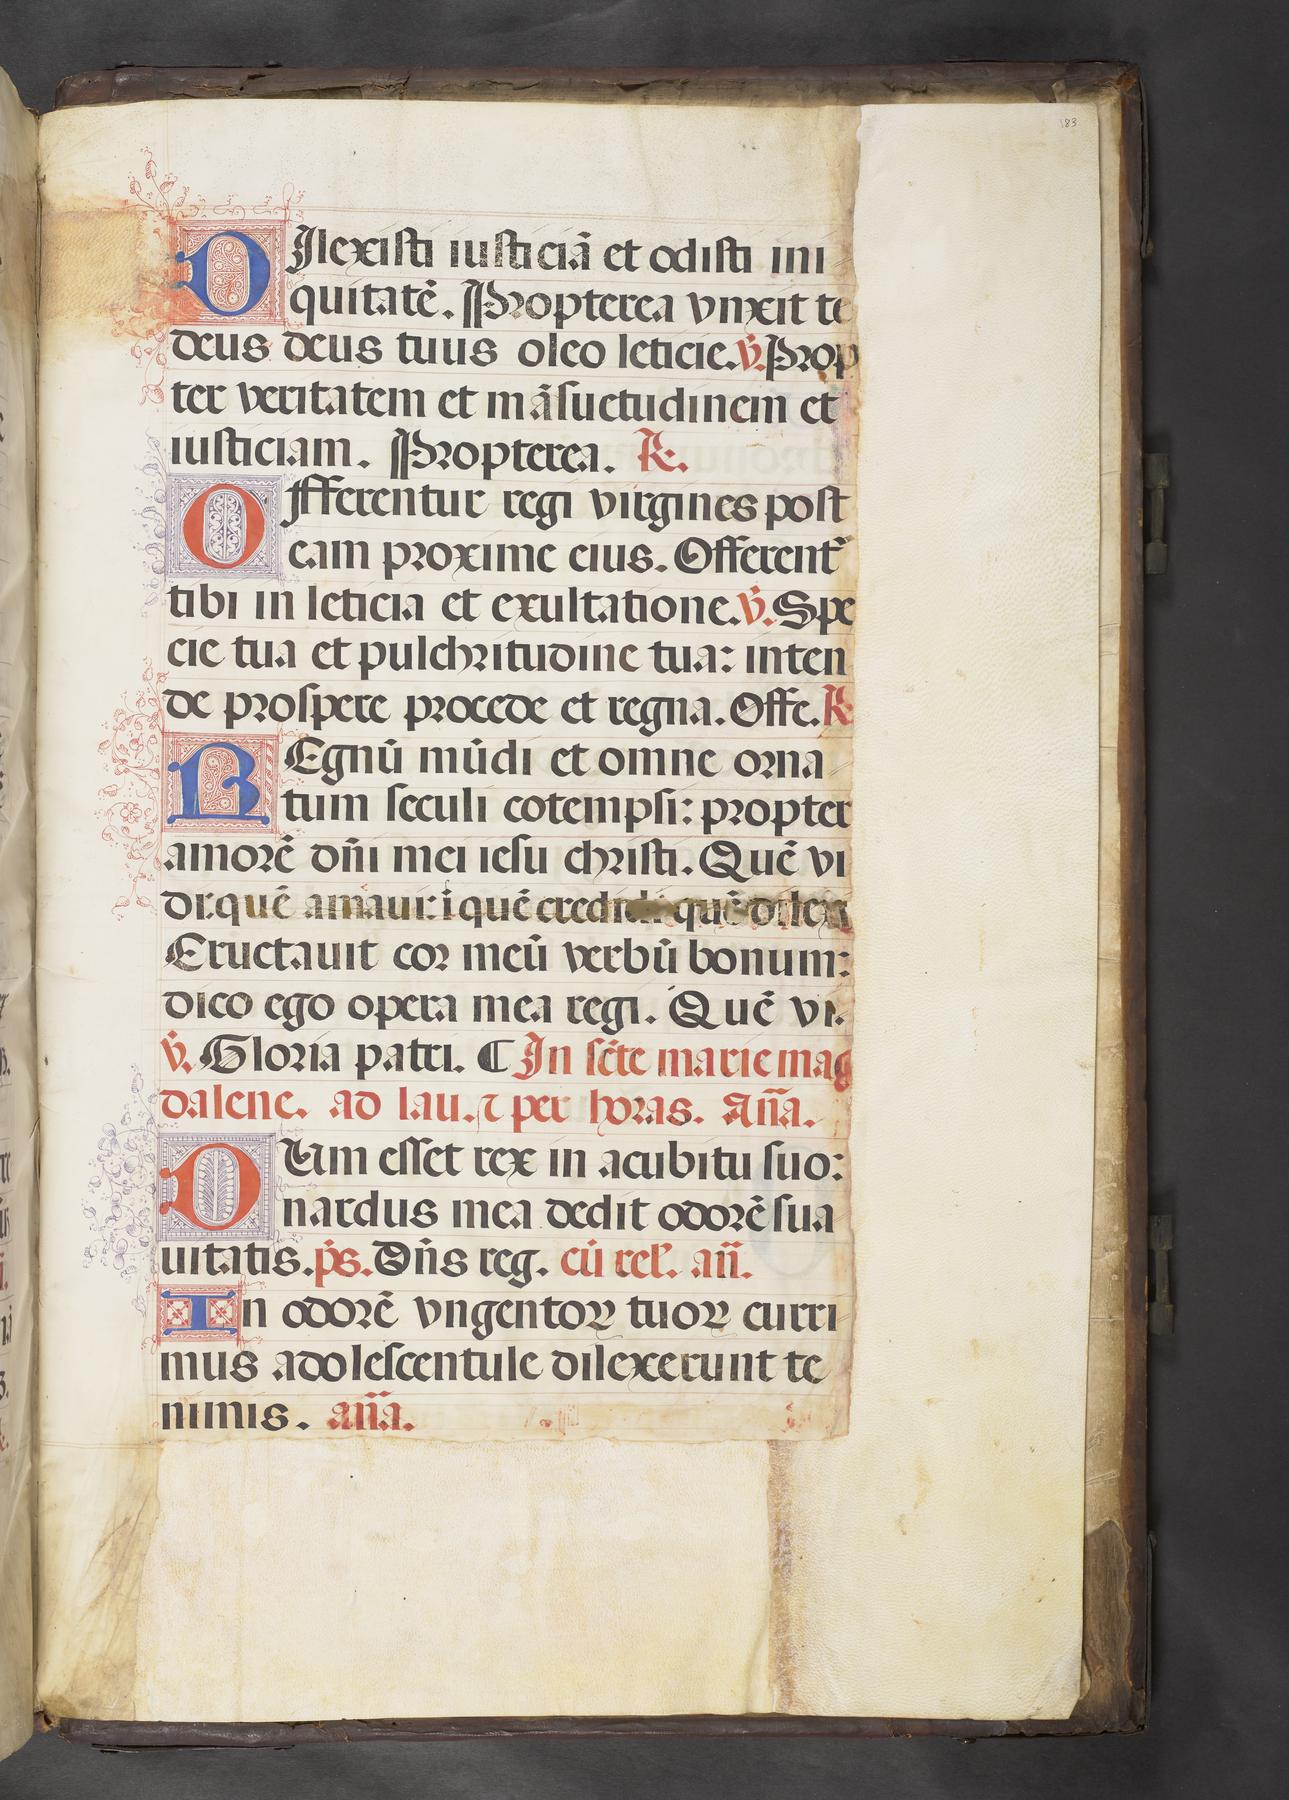 183
DIlexisti iusticiā et odisti ini
quitatē. Propterea vnxit te
deus deus tuus oleo leticie. v̄. Prop
ter veritatem et māsuetudinem et
iusticiam. Propterea. R.
OFferentur regi virgines post
eam proxime eius. Offerent᷑
tibi in leticia et exultatione. v̄. Spe
cie tua et pulchritudine tua: inten
de prospere procede et regna. Offe. R
REgnū mūdi et omne orna
tum seculi cotempsi: propter
amorē dñi mei iesu christi. Quē vi
di: quē amaui: i quē credidi quē dilexi
Eructauit cor meū verbū bonum:
dico ego opera mea regi. Quē vi.
v̄. Gloria patri. ⸿ In scẽte marie mag
dalene. ad lau. ⁊ per horas. Aña.
DUm esset rex in acubitu suo:
nardus mea dedit odorē sua
uitatis. p̄s. Dñs reg. cū rel'. añ.
In odorē vngentoꝝ tuoꝝ curri
mus adolescentule dilexerunt te
nimis. aña.